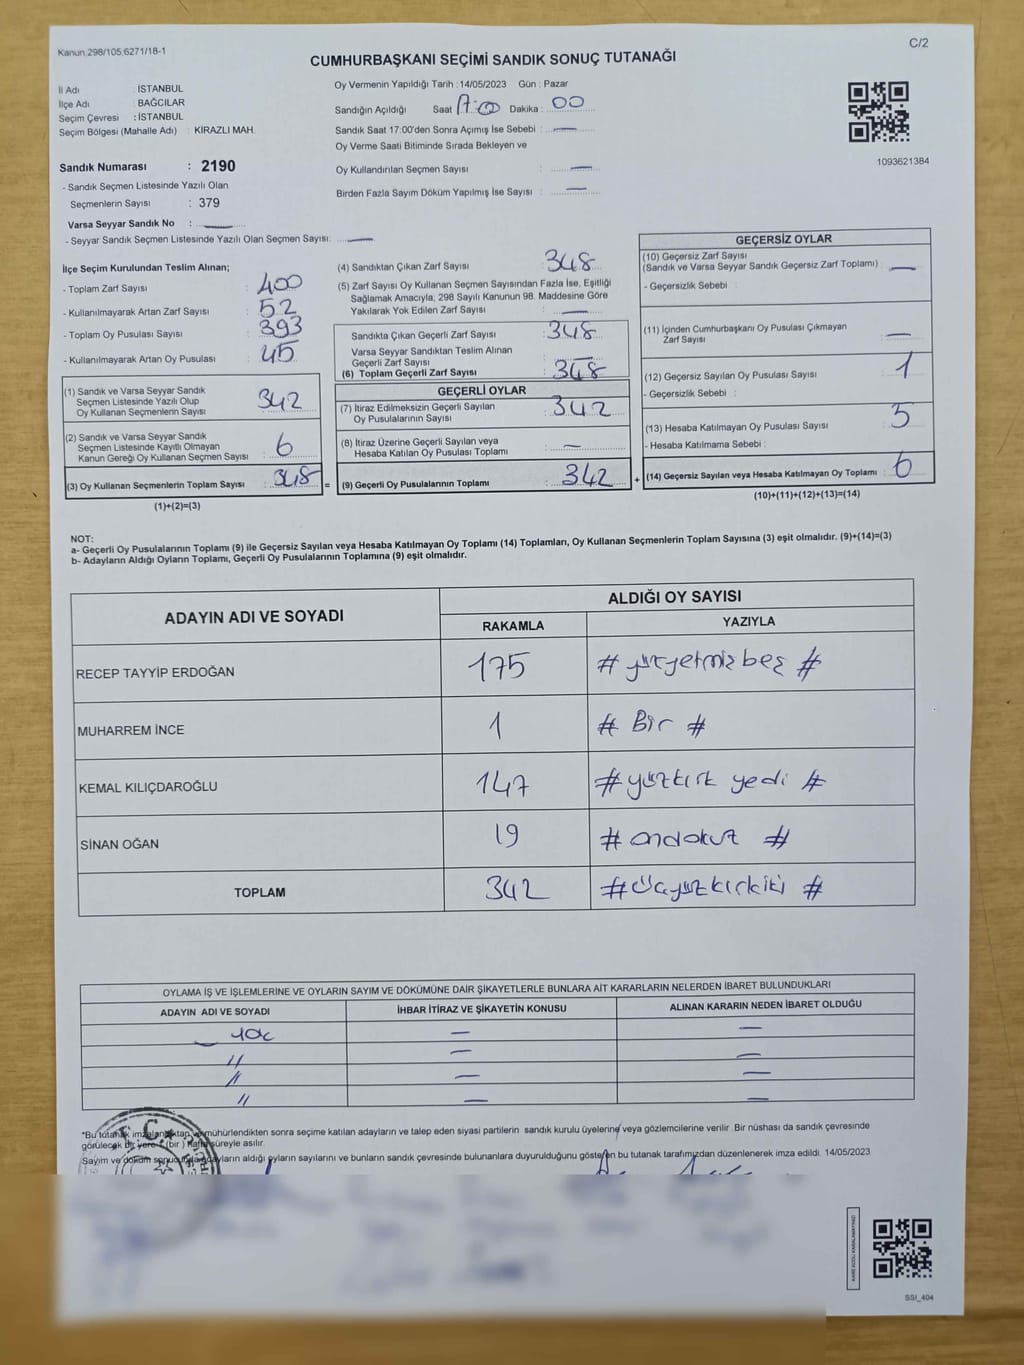 Kanun:298/105;6271/18-1
C/2
CUMHURBAŞKANI SEÇİMİ SANDIK SONUÇ TUTANAĞI
İl Adı : İSTANBUL
İlçe Adı : BAĞCILAR
Seçim Çevresi : İSTANBUL
Seçim Bölgesi (Mahalle Adı) : KİRAZLI MAH.
Sandık Numarası : 2190
- Sandık Seçmen Listesinde Yazılı Olan
Seçmenlerin Sayısı : 379
Varsa Seyyar Sandık No : —
- Seyyar Sandık Seçmen Listesinde Yazılı Olan Seçmen Sayısı: —
Oy Vermenin Yapıldığı Tarih : 14/05/2023 Gün : Pazar
Sandığın Açıldığı Saat 17:00 Dakika : 00
Sandık Saat 17:00'den Sonra Açımış İse Sebebi : —
Oy Verme Saati Bitiminde Sırada Bekleyen ve
Oy Kullandırılan Seçmen Sayısı : —
Birden Fazla Sayım Döküm Yapılmış İse Sayısı : —
1093621384
İlçe Seçim Kurulundan Teslim Alınan;
- Toplam Zarf Sayısı : 400
- Kullanılmayarak Artan Zarf Sayısı : 52
- Toplam Oy Pusulası Sayısı : 393
- Kullanılmayarak Artan Oy Pusulası : 45
(1) Sandık ve Varsa Seyyar Sandık
Seçmen Listesinde Yazılı Olup
Oy Kullanan Seçmenlerin Sayısı : 342
(2) Sandık ve Varsa Seyyar Sandık
Seçmen Listesinde Kayıtlı Olmayan
Kanun Gereği Oy Kullanan Seçmen Sayısı : 6
(3) Oy Kullanan Seçmenlerin Toplam Sayısı : 348
(1)+(2)=(3)
(4) Sandıktan Çıkan Zarf Sayısı : 348
(5) Zarf Sayısı Oy Kullanan Seçmen Sayısından Fazla İse, Eşitliği
Sağlamak Amacıyla; 298 Sayılı Kanunun 98. Maddesine Göre
Yakılarak Yok Edilen Zarf Sayısı : —
Sandıkta Çıkan Geçerli Zarf Sayısı : 348
Varsa Seyyar Sandıktan Teslim Alınan
Geçerli Zarf Sayısı : —
(6) Toplam Geçerli Zarf Sayısı : 348
GEÇERLİ OYLAR
(7) İtiraz Edilmeksizin Geçerli Sayılan
Oy Pusulalarının Sayısı : 342
(8) İtiraz Üzerine Geçerli Sayılan veya
Hesaba Katılan Oy Pusulası Toplamı : —
= (9) Geçerli Oy Pusulalarının Toplamı : 342
GEÇERSİZ OYLAR
(10) Geçersiz Zarf Sayısı
(Sandık ve Varsa Seyyar Sandık Geçersiz Zarf Toplamı) : —
- Geçersizlik Sebebi :
(11) İçinden Cumhurbaşkanı Oy Pusulası Çıkmayan
Zarf Sayısı : —
(12) Geçersiz Sayılan Oy Pusulası Sayısı : 1
- Geçersizlik Sebebi :
(13) Hesaba Katılmayan Oy Pusulası Sayısı : 5
- Hesaba Katılmama Sebebi :
+ (14) Geçersiz Sayılan veya Hesaba Katılmayan Oy Toplamı : 6
(10)+(11)+(12)+(13)=(14)
NOT:
a- Geçerli Oy Pusulalarının Toplamı (9) ile Geçersiz Sayılan veya Hesaba Katılmayan Oy Toplamı (14) Toplamları, Oy Kullanan Seçmenlerin Toplam Sayısına (3) eşit olmalıdır. (9)+(14)=(3)
b- Adayların Aldığı Oyların Toplamı, Geçerli Oy Pusulalarının Toplamına (9) eşit olmalıdır.
ADAYIN ADI VE SOYADI ALDIĞI OY SAYISI
RAKAMLA YAZIYLA
RECEP TAYYİP ERDOĞAN 175 # yüzyetmişbeş #
MUHARREM İNCE 1 # Bir #
KEMAL KILIÇDAROĞLU 147 # yüzkırk yedi #
SİNAN OĞAN 19 # ondokuz #
TOPLAM 342 # üçyüzkırkiki #
OYLAMA İŞ VE İŞLEMLERİNE VE OYLARIN SAYIM VE DÖKÜMÜNE DAİR ŞİKAYETLERLE BUNLARA AİT KARARLARIN NELERDEN İBARET BULUNDUKLARI
ADAYIN ADI VE SOYADI İHBAR İTİRAZ VE ŞİKAYETİN KONUSU ALINAN KARARIN NEDEN İBARET OLDUĞU
yok — —
" — —
" — —
" — —
*Bu tutanak imzalandıktan ve mühürlendikten sonra seçime katılan adayların ve talep eden siyasi partilerin sandık kurulu üyelerine veya gözlemcilerine verilir. Bir nüshası da sandık çevresinde
görülecek bir yere (bir) hafta süreyle asılır.
Sayım ve döküm sonucu adayların aldığı oyların sayılarını ve bunların sandık çevresinde bulunanlara duyurulduğunu gösteren bu tutanak tarafımızdan düzenlenerek imza edildi. 14/05/2023
SSI_404